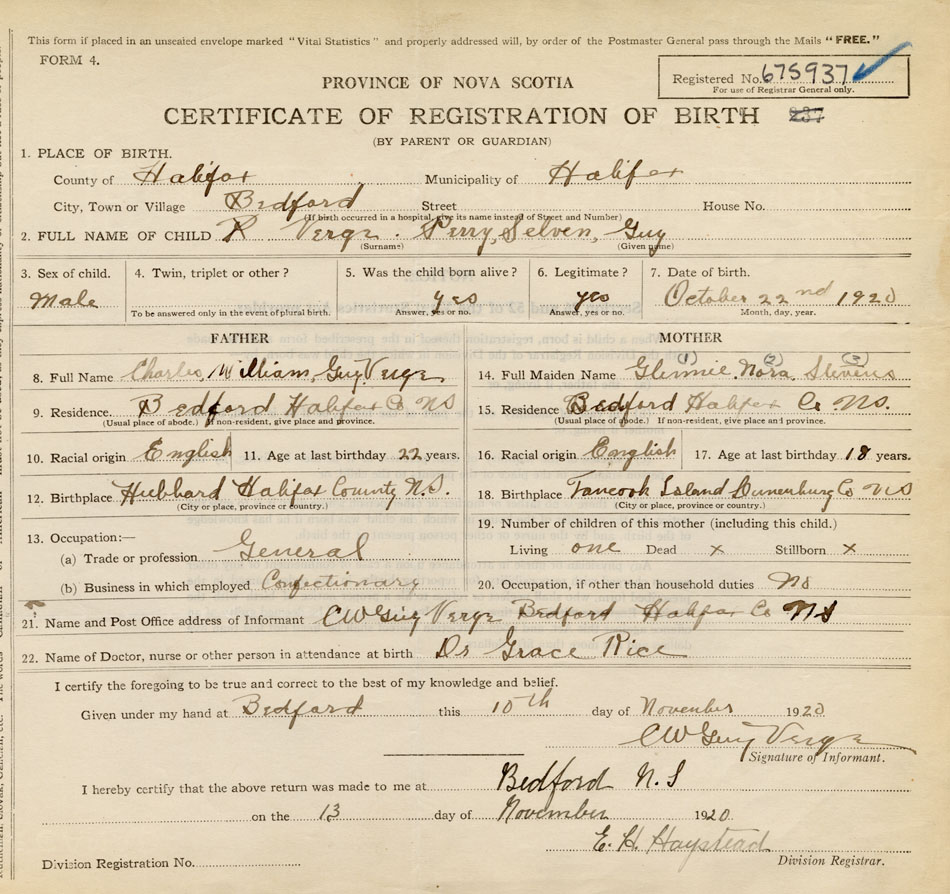 This form if placed in an unsealed envelope marked "Vital Statistics" and properly addressed will, by order of the Postmaster General pass through the Mails "FREE."
FORM 4.
Registered No. 675937
For use of Registrar General only.
PROVINCE OF NOVA SCOTIA
CERTIFICATE OF REGISTRATION OF BIRTH 237
(BY PARENT OR GUARDIAN)
1. PLACE OF BIRTH.
County of Halifax Municipality of Halifax
City, Town or Village Bedford Street House No.
(If birth occurred in a hospital, give its name instead of Street and Number)
2. FULL NAME OF CHILD X Verge. Perry, Selven, Guy
(Surname) (Given name)
3. Sex of child. 4. Twin, triplet or other? 5. Was the child born alive? 6. Legitimate? 7. Date of birth.
Male yes yes October 22nd 1920
To be answered only in the event of plural birth. Answer, yes or no. Answer, yes or no. Month, day, year.
FATHER MOTHER
(1) (2) (3)
8. Full Name Charles, William, Guy Verge 14. Full Maiden Name Glennie Nora Stevens
9. Residence. Bedford Halifax Co NS 15. Residence Bedford Halifax Co NS.
(Usual place of abode.) If non-resident, give place and province. (Usual place of abode.) If non-resident, give place and province.
10. Racial origin English 11. Age at last birthday 22 years. 16. Racial origin English 17. Age at last birthday 18 years.
12. Birthplace Hubbard Halifax County N.S. 18. Birthplace Tancook Island Lunenburg Co NS
(City or place, province or country.) (City or place, province or country.)
19. Number of children of this mother (including this child.)
13. Occupation:—
(a) Trade or profession General Living one Dead x Stillborn x
(b) Business in which employed Confectionary 20. Occupation, if other than household duties No
21. Name and Post Office address of Informant CW Guy Verge Bedford Halifax Co NS
22. Name of Doctor, nurse or other person in attendance at birth Dr Grace Rice
I certify the foregoing to be true and correct to the best of my knowledge and belief.
Given under my hand at Bedford this 10th day of November 1920
CW Guy Verge
Signature of Informant.
I hereby certify that the above return was made to me at Bedford N.S
on the 13 day of November 1920.
E. H. Haystead
Division Registration No. Division Registrar.